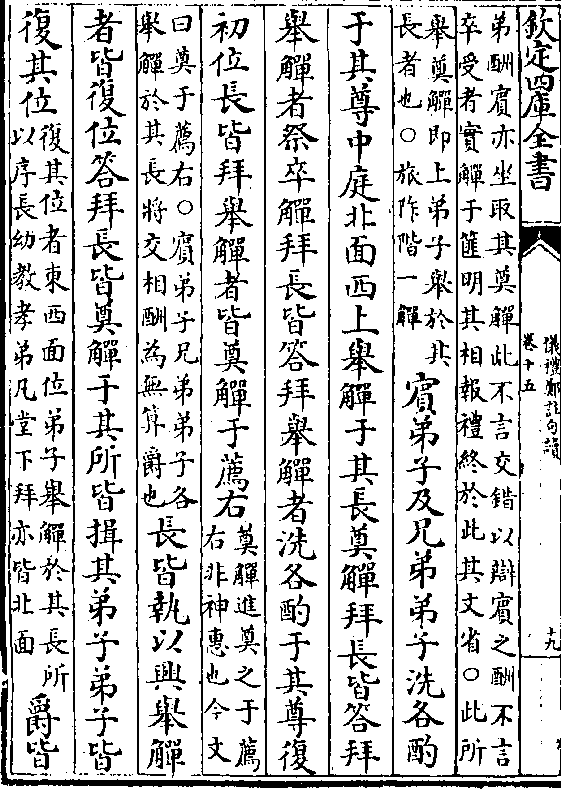 欽定四庫全書
儀禮鄭註句讀
卷十五
十九
弟酬賓亦坐取其奠觶此不言交錯以辯賓之酬不言
卒受者實觶于篚明其相報禮終於此其文省○此所
舉奠觶即上弟子舉於其
長者也○旅阼階一觶
賓弟子及兄弟弟子洗各酌
于其尊中庭北面西上舉觶于其長奠觶拜長皆答拜
舉觶者祭卒觶拜長皆答拜舉觶者洗各酌于其尊復
初位長皆拜舉觶者皆奠觶于薦右
奠觶進奠之于薦
右非神惠也今文
曰奠于薦右○賓弟子兄弟弟子各
舉觶於其長將交相酬為無筭爵也
長皆執以興舉觶
者皆復位答拜長皆奠觶于其所皆揖其弟子弟子皆
復其位
復其位者東西面位弟子舉觶於其長所
以序長幼教孝弟凡堂下拜亦皆北面
爵皆